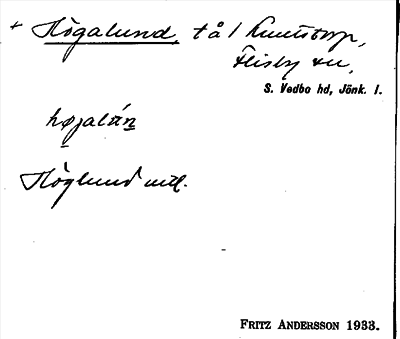 + Högalund, t å 1 Knutstorp,
Flisby sn,
S. Vedbo hd, Jönk. l.
högalán
Höglund mtl.
FRITZ ANDERSSON 1933.